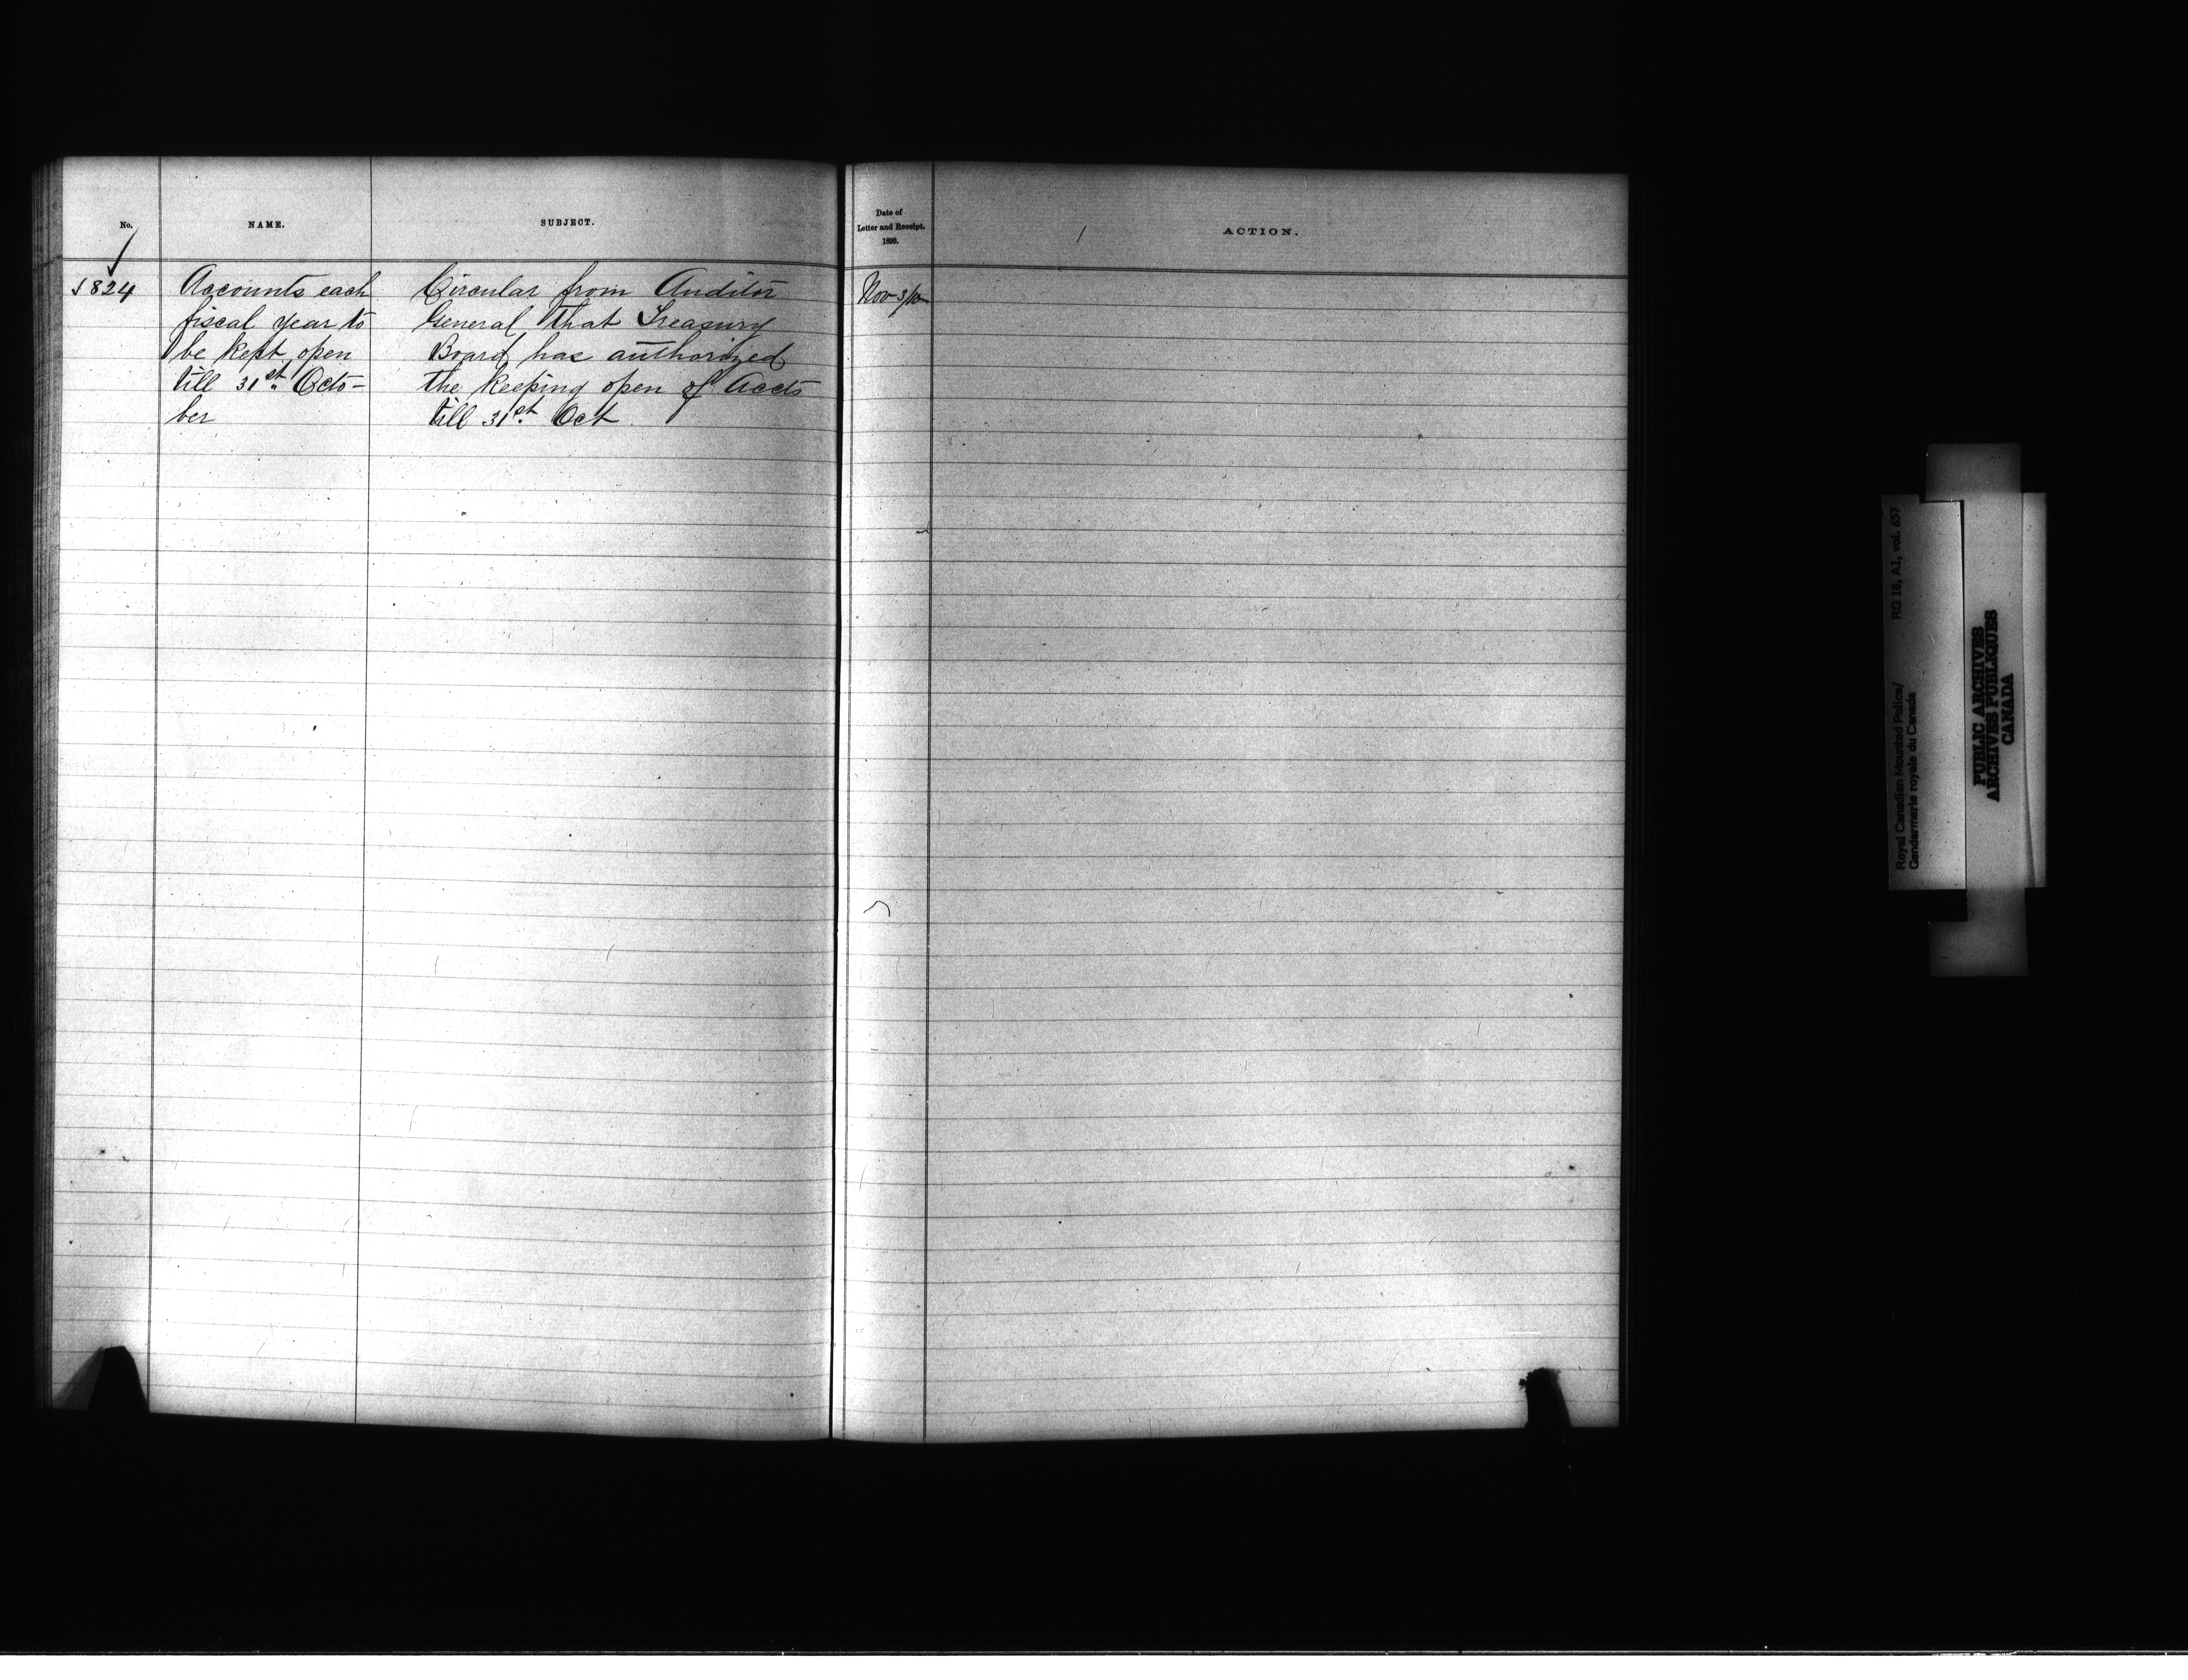 No.
NAME.
SUBJECT.
Date of
Letter and Receipt.
1890.
ACTION.
824
Accounts each
fiscal year to
be kept open
till 31st Octo-
ber
Circular from Auditor
General that Treasury
Board has authorized
the keeping open of Accts
till 31st Oct.
Nov 3/
Royal Canadian Mounted Police/ RG 18, A1, vol. 657
Gendarmerie royale du Canada
PUBLIC ARCHIVES
ARCHIVES PUBLIQUES
CANADA